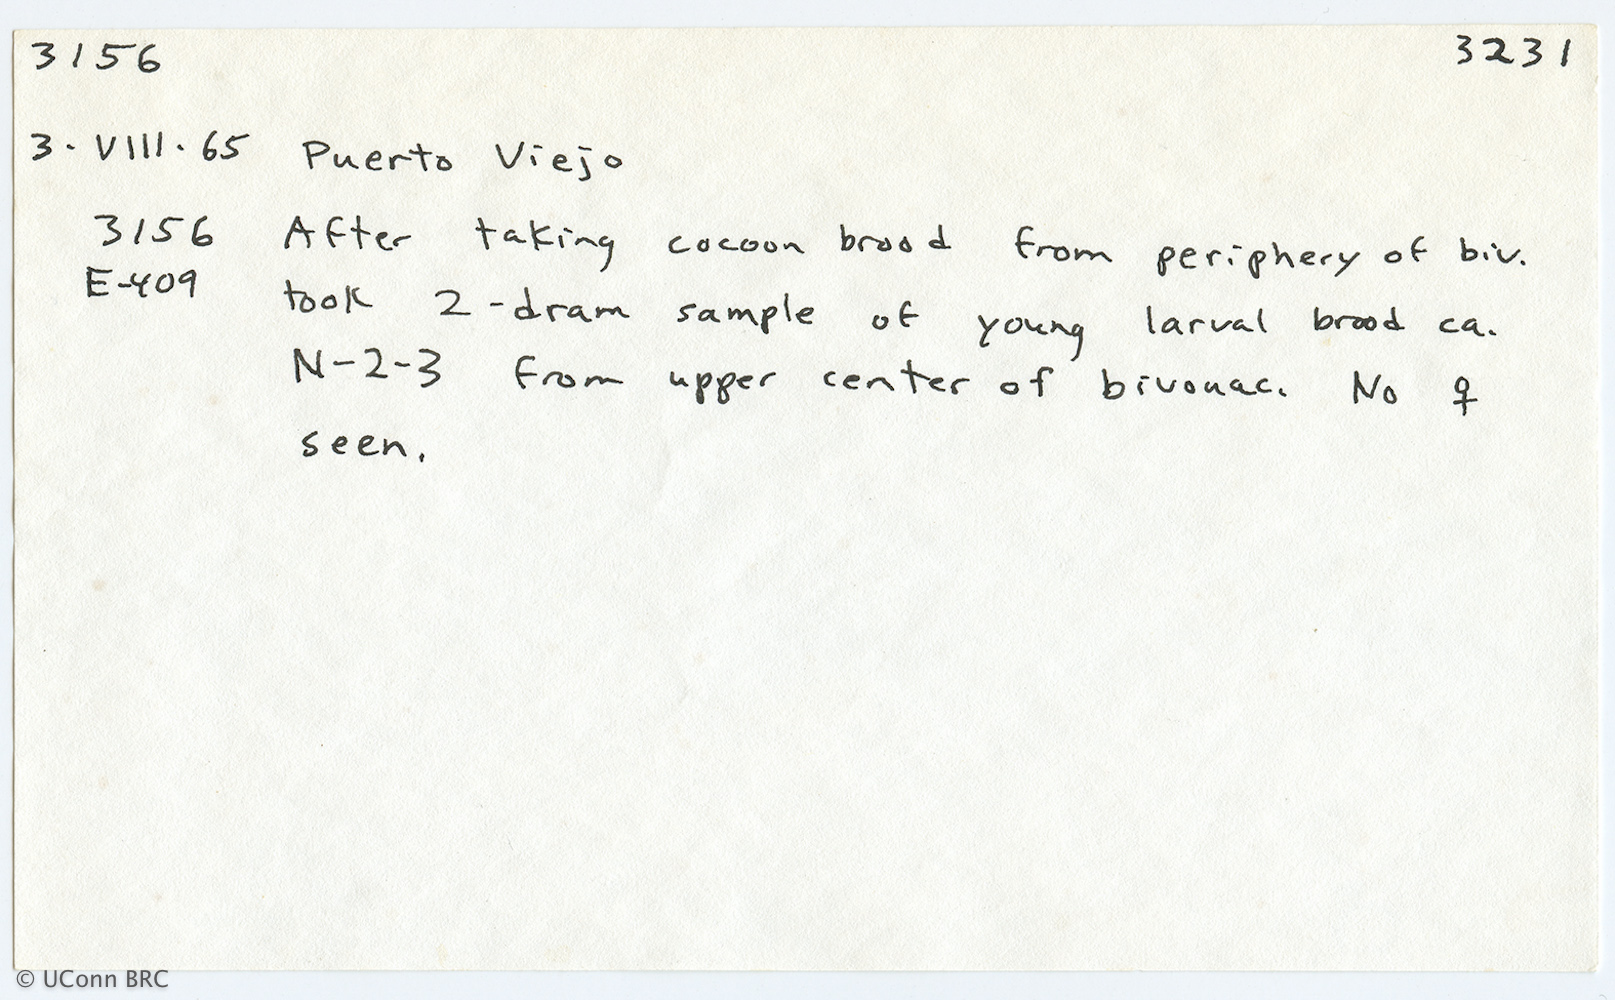 3156 3231
3. VIII. 65 Puerto Viejo
3156 After taking cocoon brood from periphery of biv.
E-409 took 2-dram sample of young larval brood ca.
N-2-3 from upper center of bivouac. No ♀
seen.
© UConn BRC